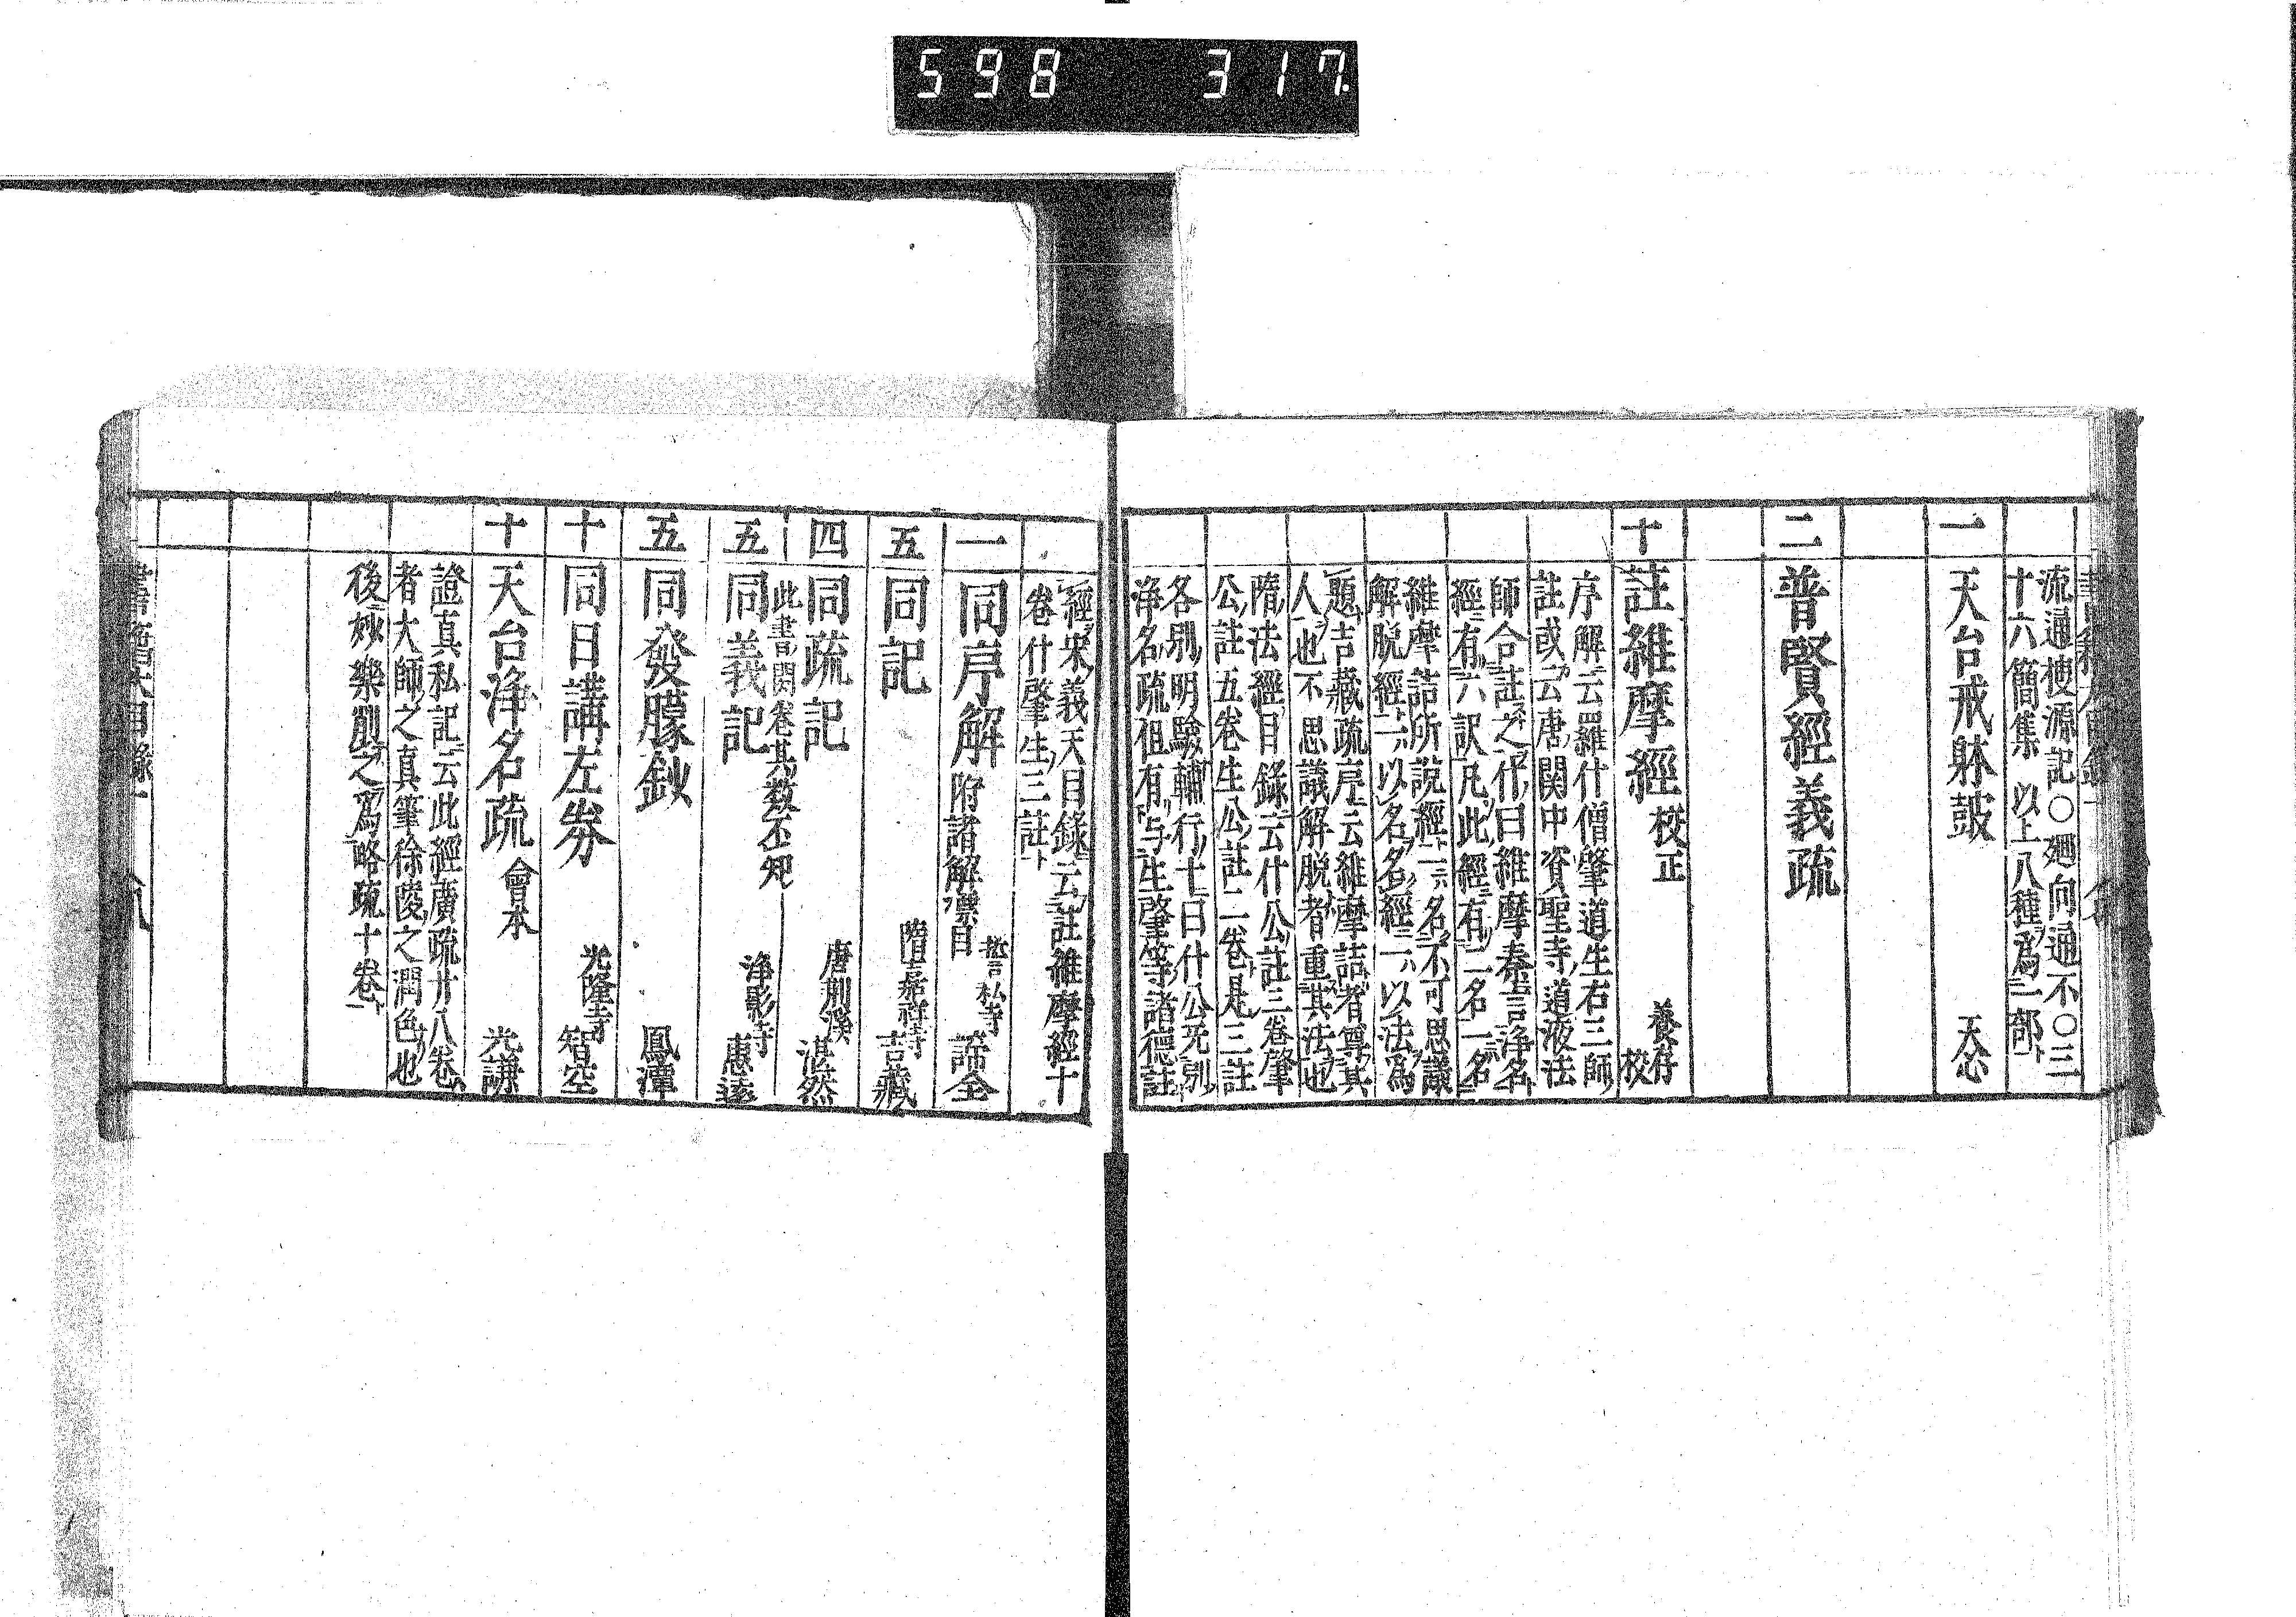 598 317
流通梗源記〇廻向通不〇三
十六簡集 以上八種爲二部
一 天台戒躰皷 天心
二 普賢經義疏
十 註維摩經 校正 養存校
序解云羅什僧肇道生右三師
註或云唐関中資聖寺道液法
師合註之什曰維摩秦言淨名
經有六訳凡此經有二名一名
維摩詰所説經二名不可思議
解脱經一以名名經二以法爲
題吉藏疏序云維摩詰者尊其
人也不思議解脱者重其法也
隋法經目錄云什公註三卷肇
公註五卷生公註二卷是三註
各別明驗輔行十曰什公死別
淨名疏但有与生肇等諸德註
經宋義天目錄云註維摩經十
卷什肇生三註
一 同序解 附諸解標目 諦全
五 同記 隋嘉祥寺 吉藏
四 同疏記 唐荆溪 湛然
此書閲卷其数不知
五 同義記 淨影寺 惠遠
五 同發矇鈔 鳳潭
十 同日講左券 光隆寺 智空
十 天台淨名疏 會本 光謙
證真私記云此經廣疏廿八卷
者大師之真筆徐陵之潤色也
後妙樂削之爲略疏十卷